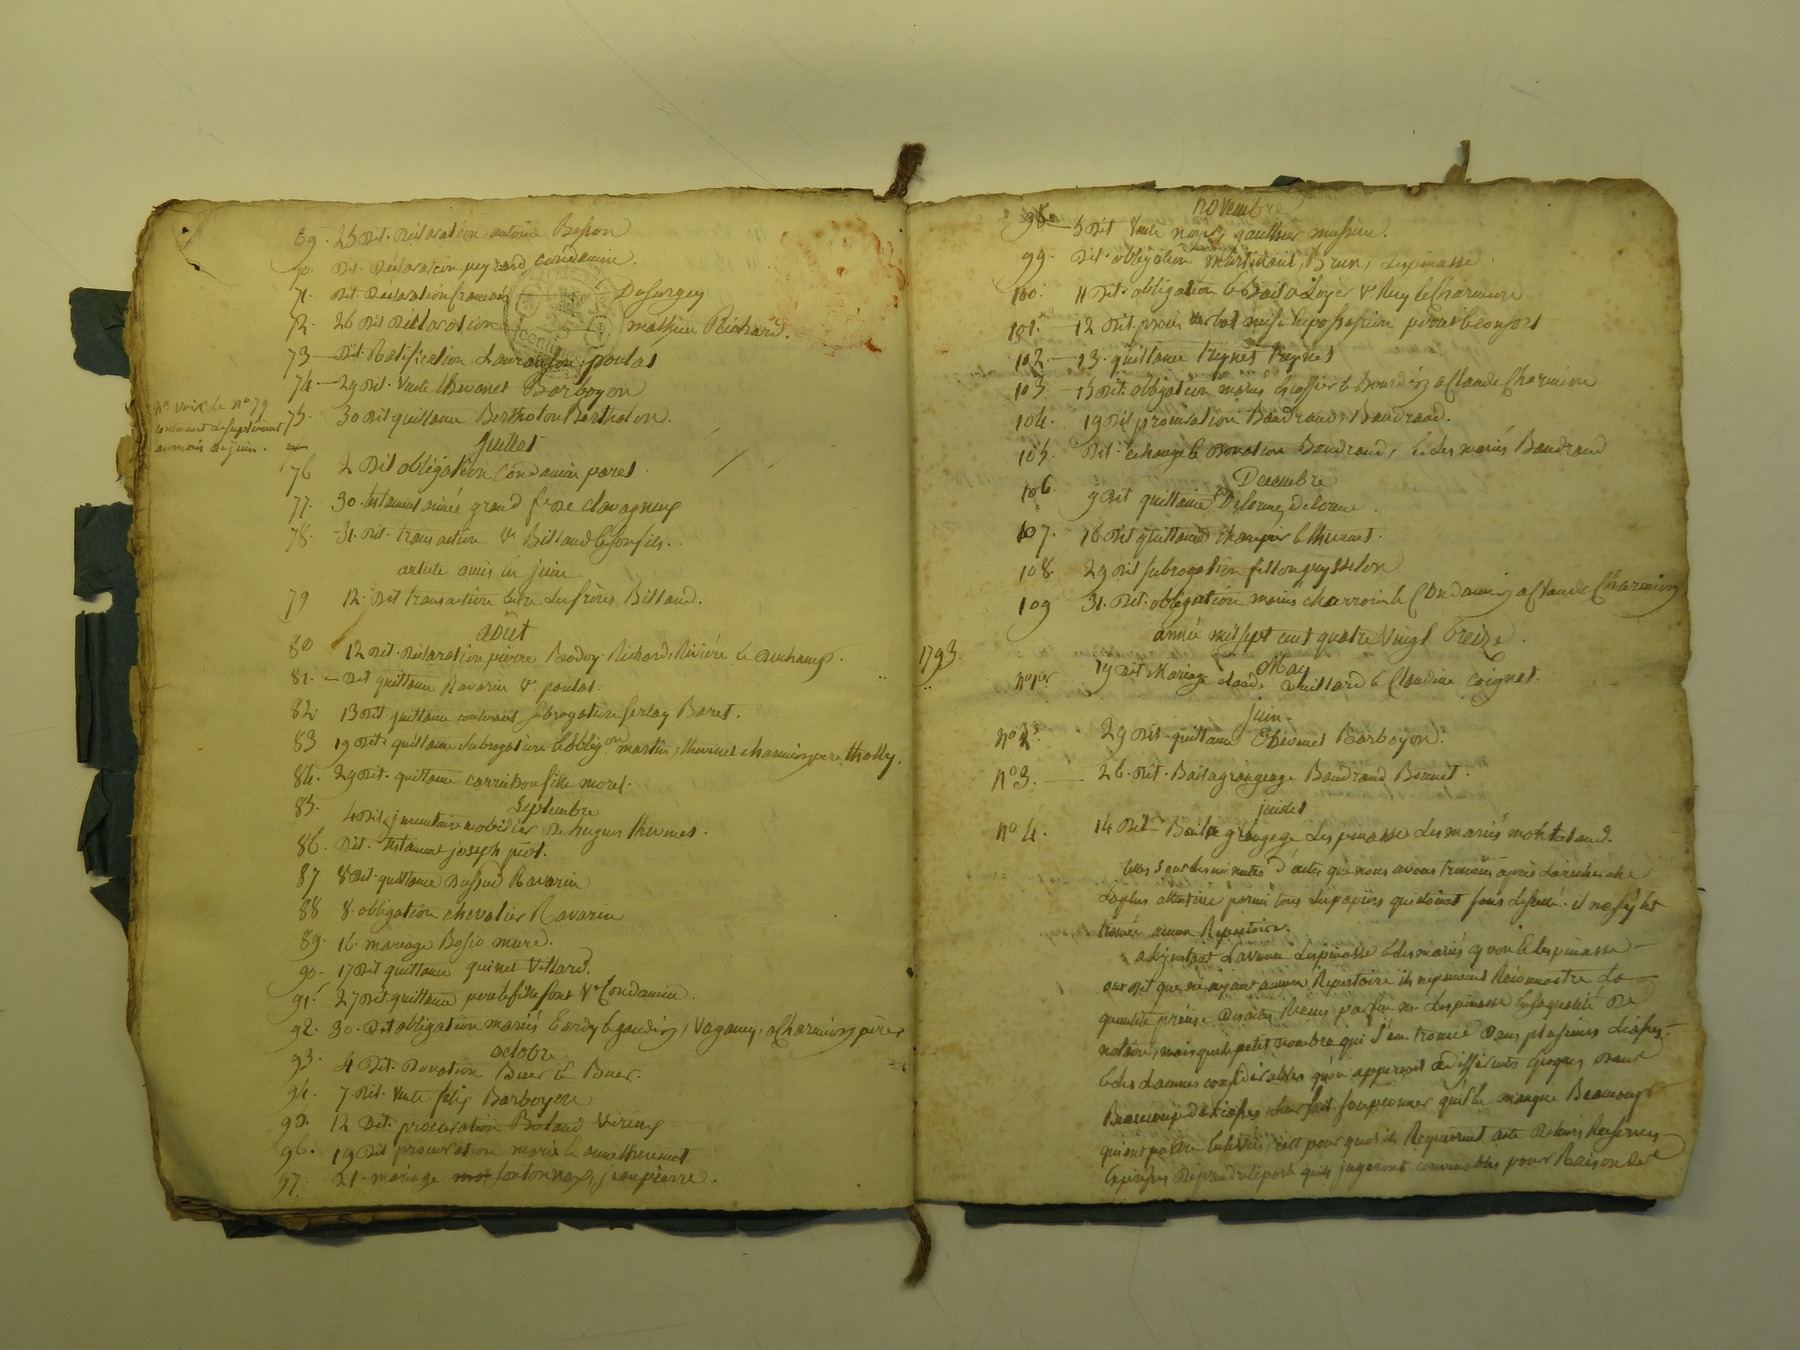 69. 25 Dit. Déclaration antoine Besson
70. Dit. Déclaration peyrard condamin.
71. Dit. Déclaration francois Dusurgey
72. 26 Dit Déclaration mathieu Richard.
73 — Dit. Ratification Lauranson, poulat
74. — 29 Dit. Vente thevenet Barboyon
75. 30 Dit quittance Bertholon Bertholon.
Na voir le n° 79
contenant suplement
au mois de juin.
Juillet
76 2 Dit obligation Condamin paret.
77. 30. testament aimée grand fe De clavagneux
78. 31. Dit. transaction Ve Billaud & son fils.
article omis en juin
79 12. Dit transaction entre Les frères Billaud.
août
80 12 Dit. Déclaration pierre Bodoy Richard, Rivière &
81. — Dit quittance Ravarin Ve poulat.
82. 13 Dit. quittance contenant subrogation ferlay Baret.
83 19 Dit. quittance Subrogation & obligon martin, thevenet charmion pere, tholly.
84. 29 Dit. quittance fille morel.
Septembre
85. 4 Dit inventaire mobilier De hugues thevenet.
86. Dit. testament joseph piot.
87 8 Dit. quittance Dussud Ravarin
88 8. obligation chevalier Ravarin
89. 16. mariage Bosio mure.
90. 17 Dit quittance quinet Villard.
91. 27 Dit quittance Ve Condamin.
92. 30. Dit obligation mariés & gaudin, Vaganay, a Charmion père
octobre
93. 4 Dit. Donation Buer & Buer.
94. 7 Dit. Vente felix Barboyon
95. 12 Dit. procuration
96. 19 Dit procuration thevenet
97. 21. mariage jean pierre.
novembre
98 — 5 Dit Vente gaulthier
99. Dit. obligation martinant, Brun, Lespinasse
100. 11 Dit. obligation & Bail a Loyer Ve Rey & Charmion
101. — 12 Dit. procès verbal mise en possession
102. — 13. quittance treynet treynet
103 — 15 Dit. obligation mariés & Bourdin a Claude Charmion
104. 19 Dit procuration Baudrand, Baudrand.
105. Dit. échange & Donation Baudrand, & des mariés Baudrand
Décembre
106. 9 Dit quittance Delorme, Delorme.
107. 16 Dit quittance & thevenet.
108. 29 Dit subrogation fillon peysselon
109 31. Dit. obligation mariés & Condamin a Claude Charmion
1793. année mil sept cent quatre Vingt treize.
May
no 1er 19 Dit Mariage claude Vuillard & Claudine Coignet.
juin
no 2. 29 Dit quittance thevenet Barboyon.
no 3. — 26. Dit. Bail a grangeage Baudrand Bonnet.
juillet
no 4. 14 Dit Bail a grangeage Lespinasse Les mariés montaland.
telles sont les minutes d'actes que nous avons trouvées après La recherche
La plus attentive parmi tous Les papiers qui étaient sous Les scellé. il ne s'y est
trouvée aucun Répertoire.
a L'instant La veuve Lespinasse & Les mariés yvon & Lespinasse
ont Dit que n'y ayant aucun Répertoire ils ne peuvent Reconnoitre La
quantité précise Des actes Reçus par feu me. Lespinasse En sa qualité De
notaire, mais que le petit nombre qui s'en trouve Dans plusieurs Liasses
& Les Lacunes considérables qu'on apperçoit à différentes époques, Dans
Beaucoup de Liasses, Leur fait soupçonner qu'il en manque Beaucoup
qui ont pu être Enlevés, c'est pour quoi ils Requierent acte De Leurs Reserves
qu'ils jugeront convenables pour Raison de